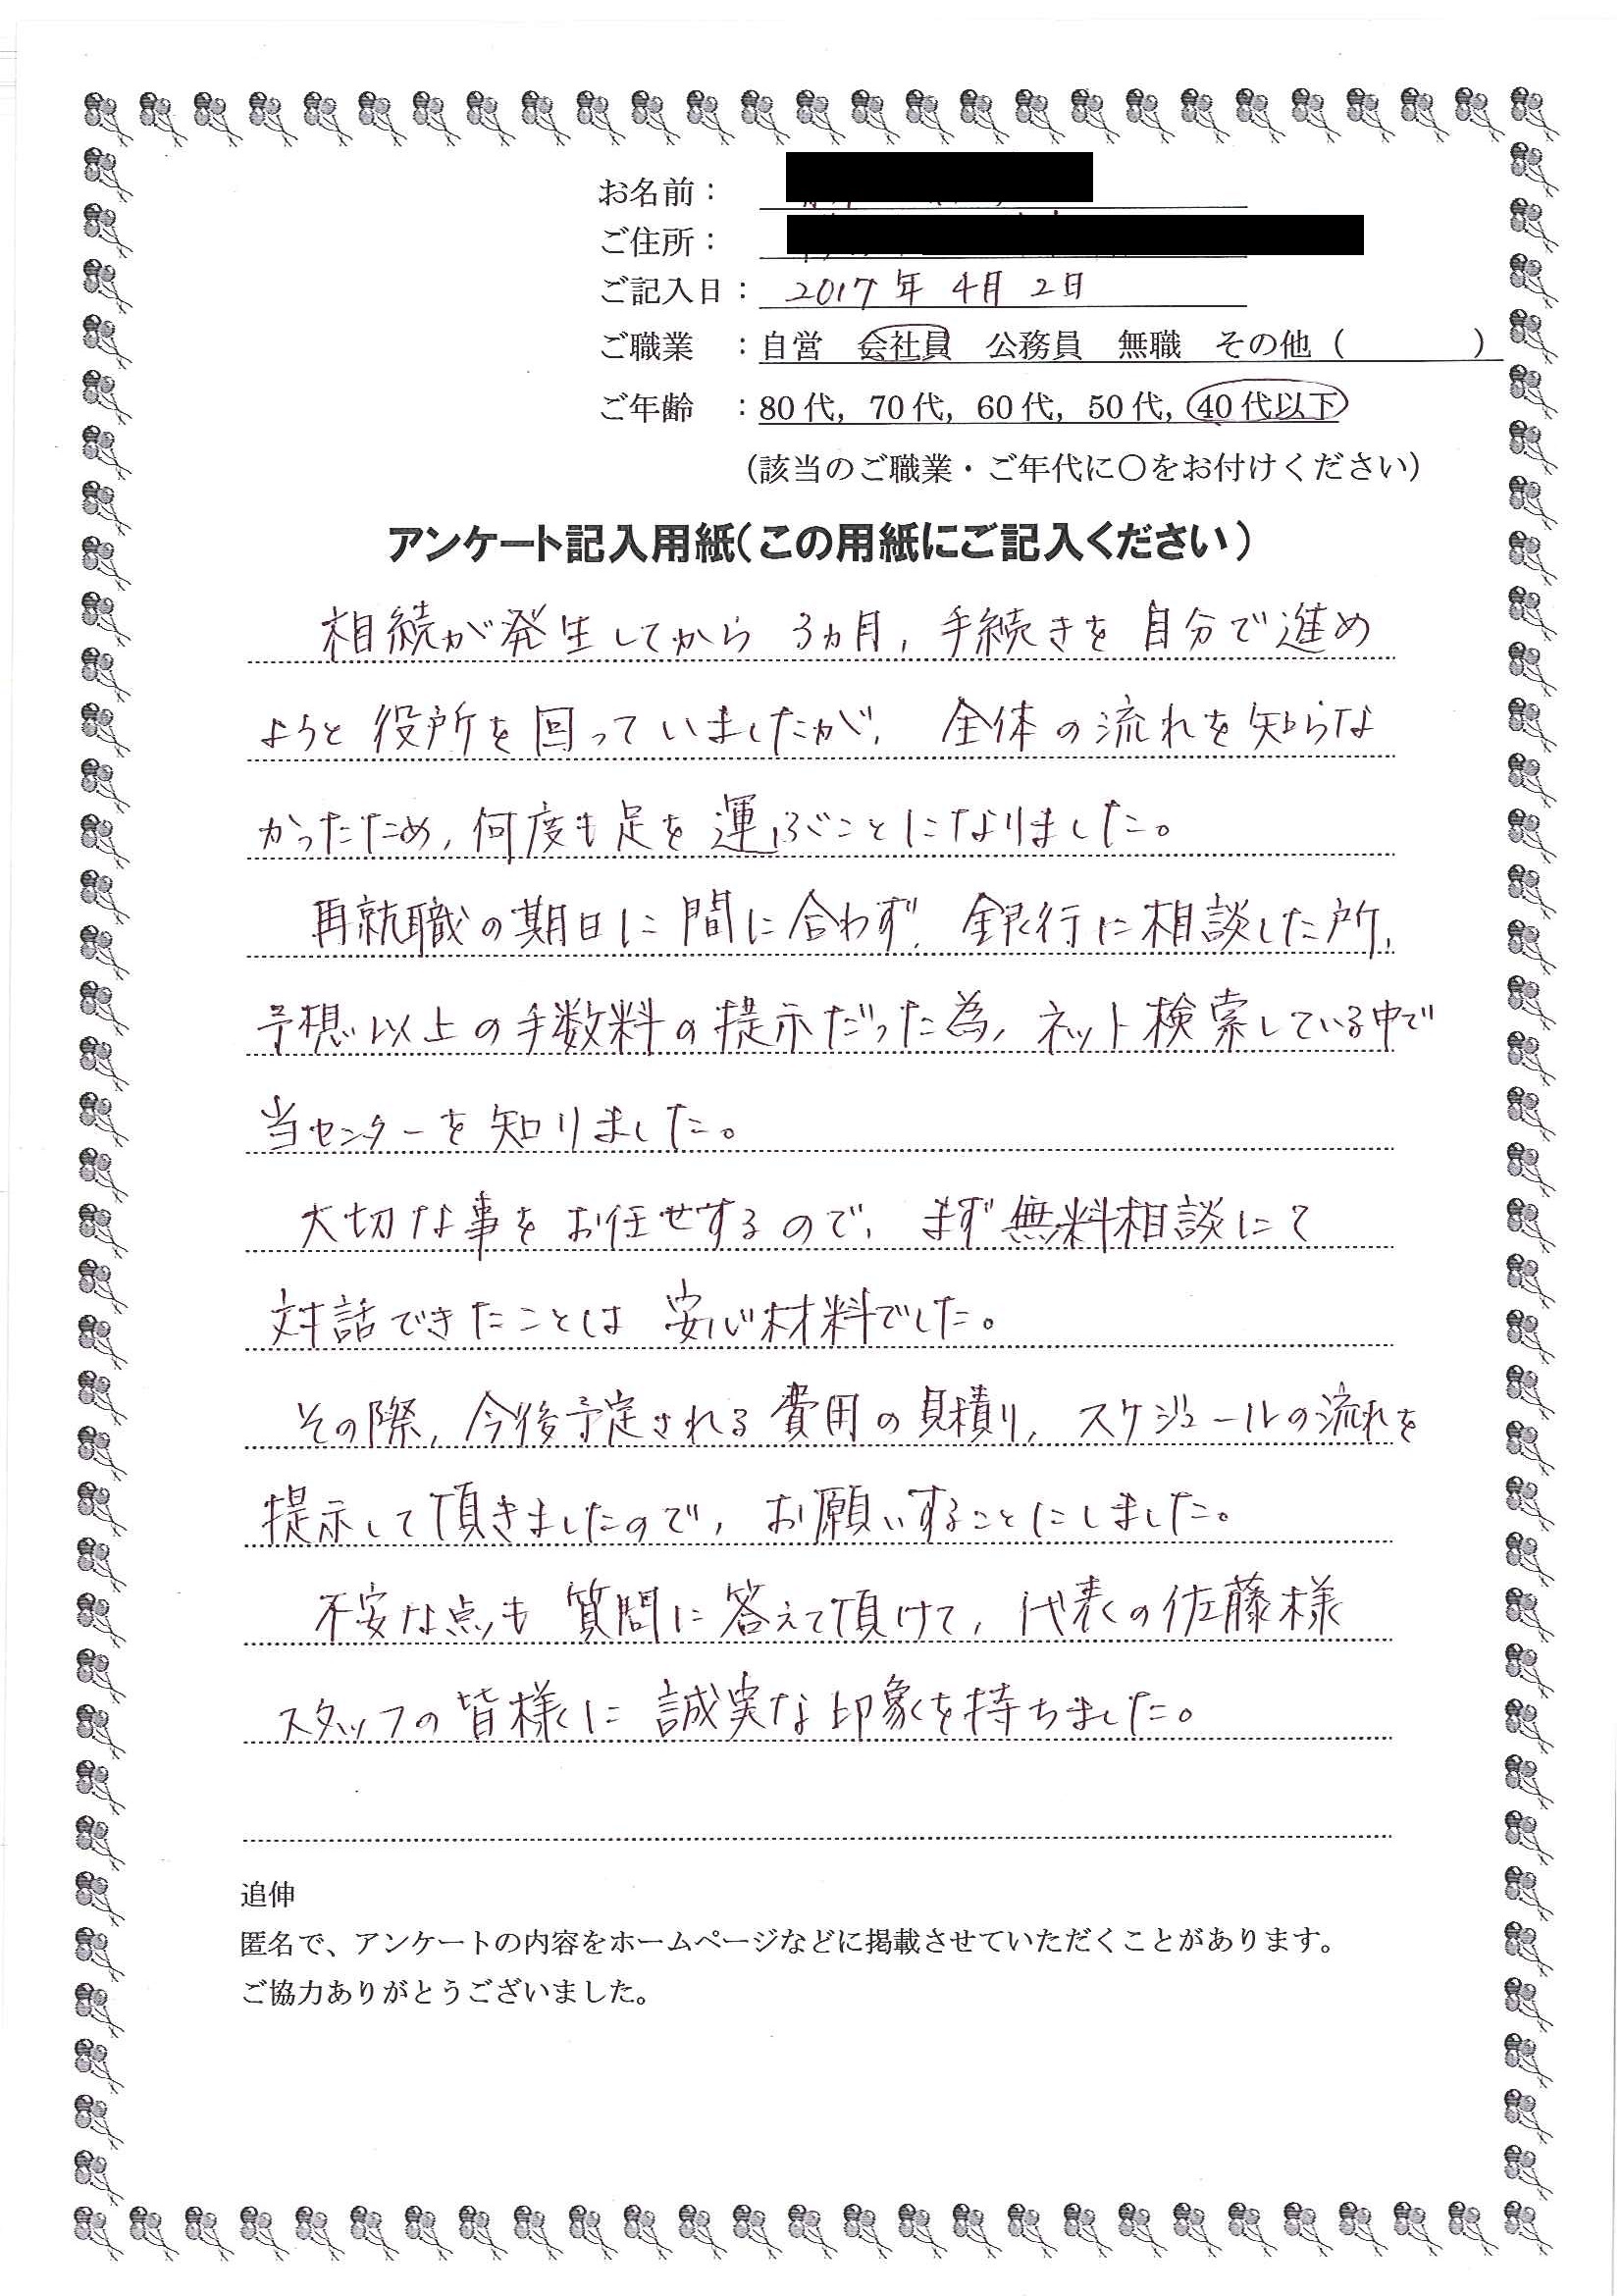 お名前：
ご住所：
ご記入日： 2017年 4月 2日
ご職業 ：自営 会社員 公務員 無職 その他（ ）
ご年齢 ：80代，70代，60代，50代，40代以下
（該当のご職業・ご年代に○をお付けください）
アンケート記入用紙（この用紙にご記入ください）
相続が発生してから 3ヵ月，手続きを 自分で進め
ようと 役所を 回っていましたが， 全体の流れを知らな
かったため，何度も足を運ぶことになりました。
再就職の期日に間に合わず，銀行に相談した所，
予想以上の手数料の提示だった為，ネット検索している中で
当センターを知りました。
大切な事をお任せするので，まず無料相談にて
対話できたことは 安心材料でした。
その際，今後予定される費用の見積り，スケジュールの流れを
提示して頂きましたので，お願いすることにしました。
不安な点も 質問に答えて頂けて，代表の佐藤様
スタッフの皆様に 誠実な印象を持ちました。
追伸
匿名で、アンケートの内容をホームページなどに掲載させていただくことがあります。
ご協力ありがとうございました。